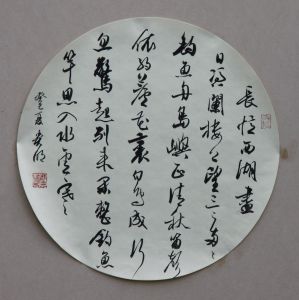 長憶西湖盡
日憑闌樓上望三三兩兩
釣魚舟島嶼正清秋笛聲
依約蘆花裏白鳥成行
忽驚起別來閒整釣魚
竿思入水雲寒
癸巳夏